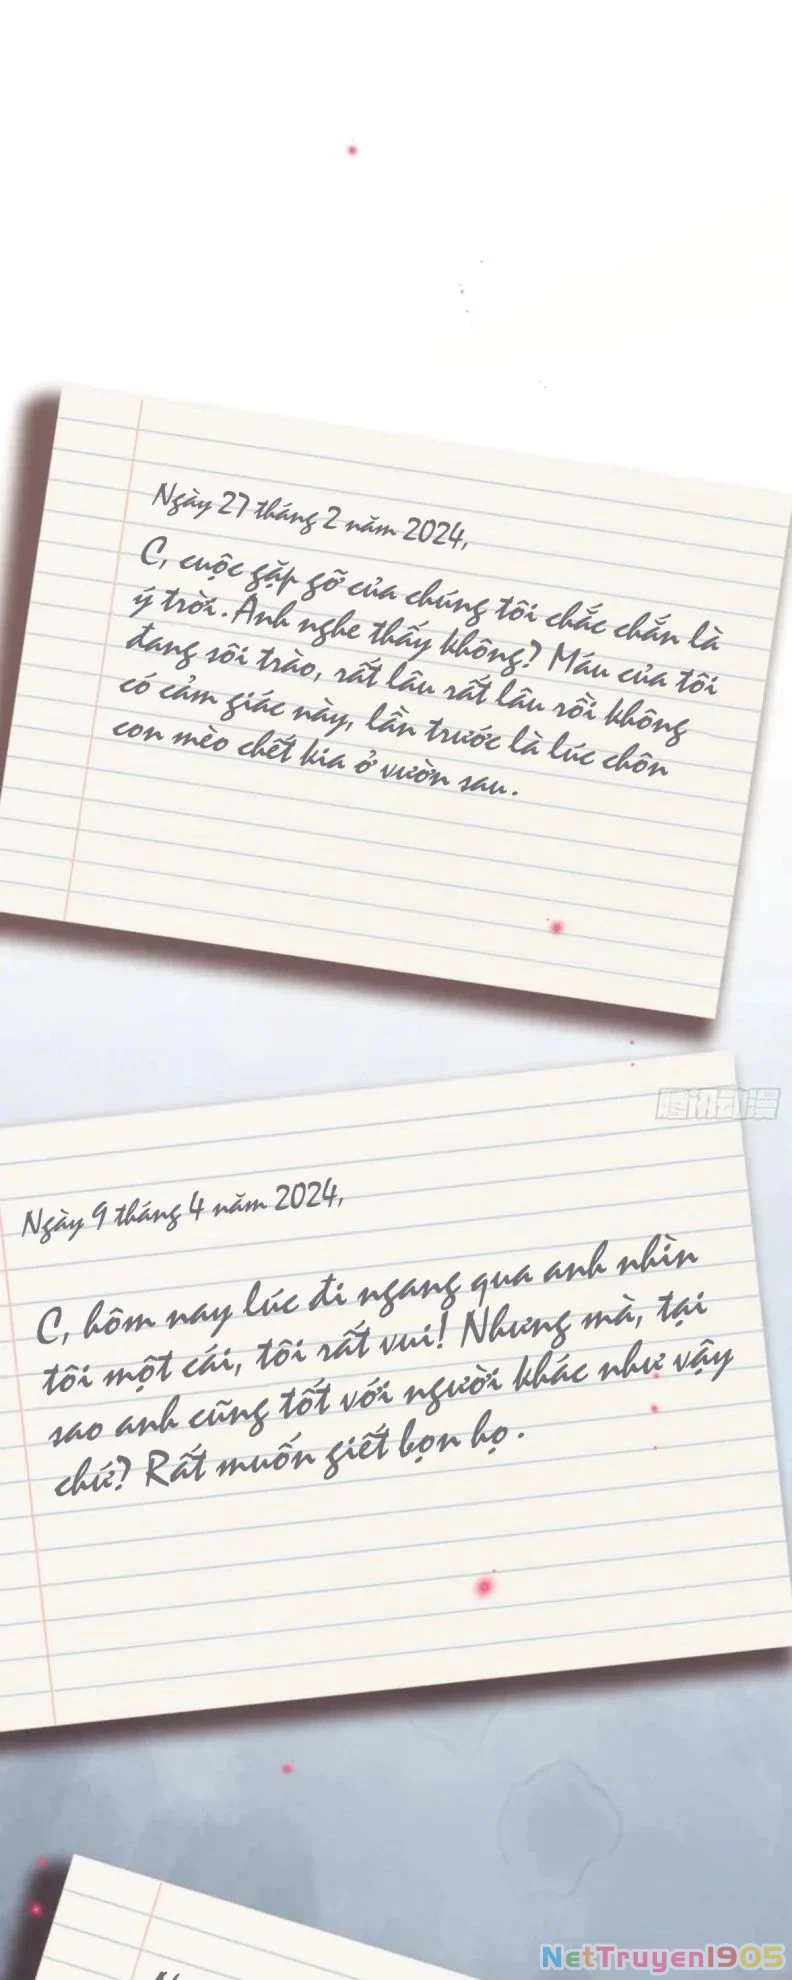 Ngày 27 tháng 2 năm 2024,
C, cuộc gặp gỡ của chúng tôi chắc chắn là
ý trời. Anh nghe thấy không? Máu của tôi
đang sôi trào, rất lâu rất lâu rồi không
có cảm giác này, lần trước là lúc chôn
con mèo chết kia ở vườn sau.
腾讯动漫
Ngày 9 tháng 4 năm 2024,
C, hôm nay lúc đi ngang qua anh nhìn
tôi một cái, tôi rất vui! Nhưng mà, tại
sao anh cũng tốt với người khác như vậy
chứ? Rất muốn giết bọn họ.
NetTruyen1905